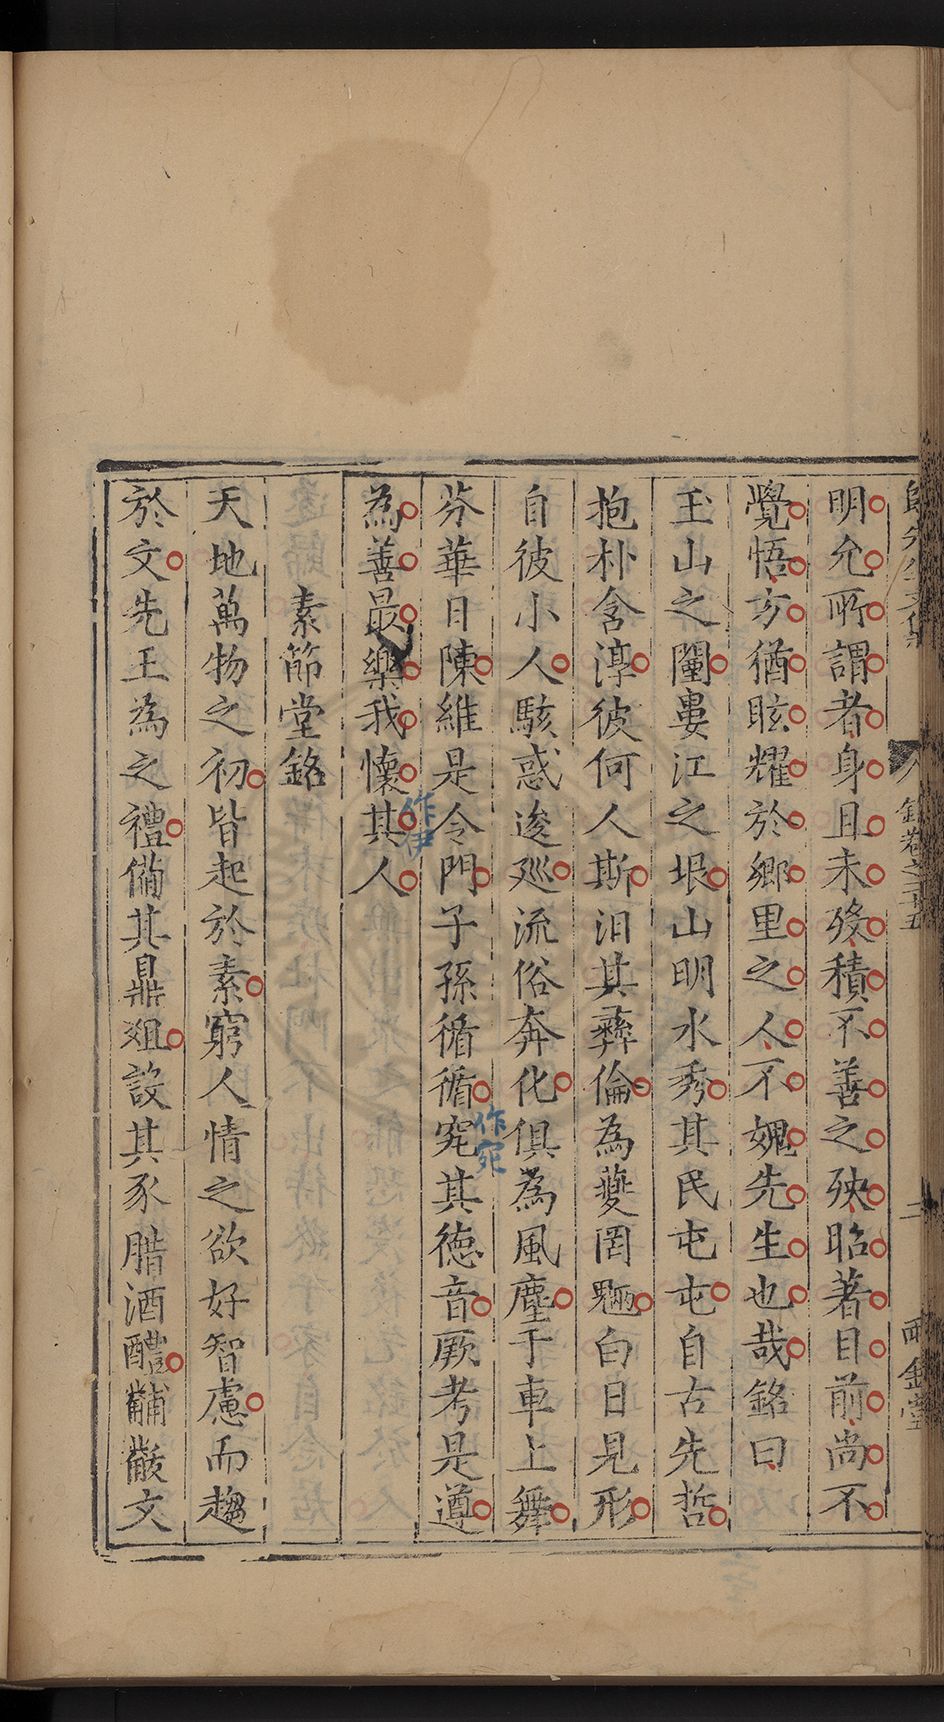 明允所謂者身且未歿積不善之殃昭著目前尚不
覺悟方猶眩耀於鄉里之人不媿先生也哉銘曰
玉山之闉婁江之垠山明水秀其民屯屯自古先哲
抱朴含淳彼何人斯汩其彝倫為夔罔魎白日見形
自彼小人駭惑逡巡流俗奔化俱為風塵于車上舞
芬華日陳維是令門子孫循循究其德音厥考是遵
作宛
為善最樂我懷其人
作伊
素節堂銘
天地萬物之初皆起於素窮人情之欲好智慮而趨
於文先王為之禮備其鼎爼設其豕腊酒醴黼黻文